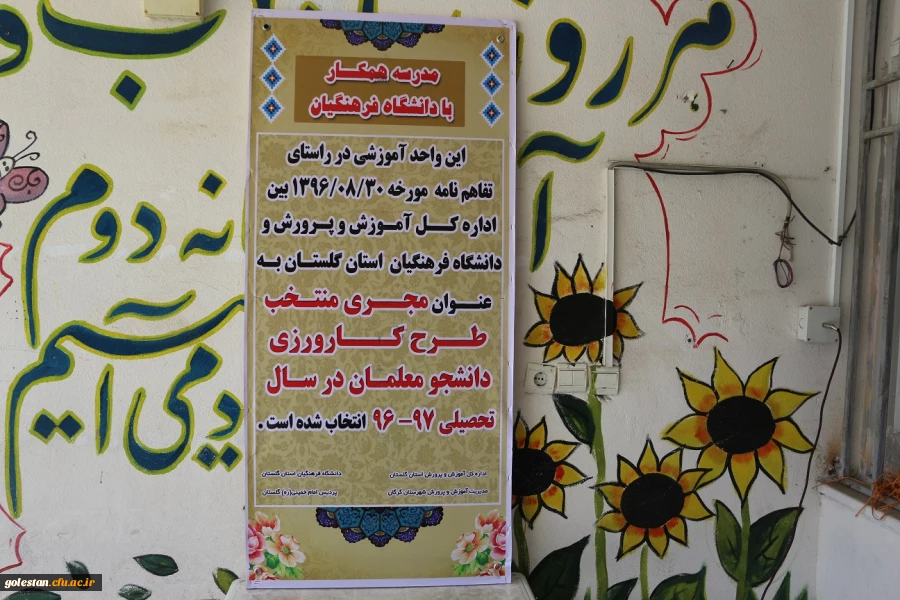 مدرسه همکار
با دانشگاه فرهنگیان
این واحد آموزشی در راستای
تفاهم نامه مورخه ۱۳۹۶/۰۸/۳۰ بین
اداره کل آموزش و پرورش و
دانشگاه فرهنگیان استان گلستان به
عنوان مجری منتخب
طرح کارورزی
دانشجو معلمان در سال
تحصیلی ۹۷-۹۶ انتخاب شده است.
اداره کل آموزش و پرورش استان گلستان
دانشگاه فرهنگیان استان گلستان
مدیریت آموزش و پرورش شهرستان گرگان
پردیس امام خمینی(ره) گلستان
دوم
golestan.cfu.ac.ir